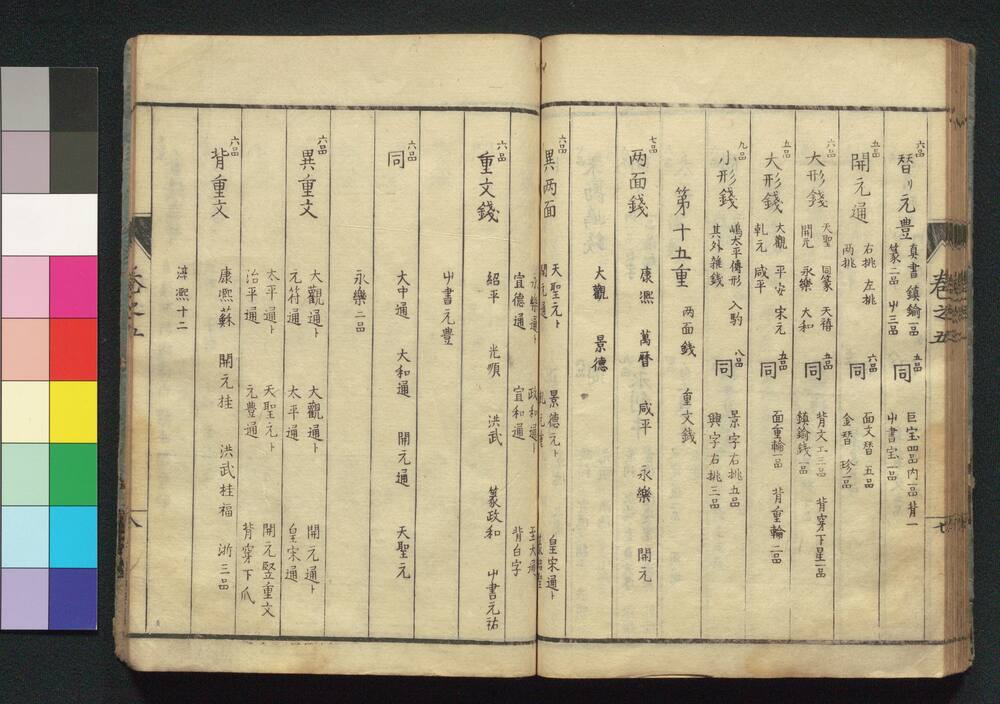 六品
替リ元豊
真書 鎮鍮一品
篆二品 屮三品
五品
同
巨宝四品内一品背一
屮書宝一品
五品
開元通
右挑 左挑
両挑
六品
同
面文替 五品
金替 珍一品
六品
大形錢
天聖 同篆 天禧
開元 永樂 大和
五品
同
背文工三品 背穿下星一品
鎮鍮錢一品
五品
大形錢
大觀 平安 宋元
乹元 咸平
五品
同
面重輪一品 背重輪二品
九品
小形錢
嶋太平傳形 入駒
其外雑錢
八品
同
景字右挑五品
興字右挑三品
第十五重 两面錢 重文錢
七品
两面錢
康熈 萬暦 咸平 永樂 開元
大觀 景德
六品
異两面
天聖元ト 景德元ト 皇宋通ト
宣德通 宣和通 背白字
六品
重文錢
紹平 光順 洪武 篆政和 屮書元祐
屮書元豊
六品
同
大中通 大和通 開元通 天聖元
永樂二品
六品
異重文
大觀通ト 大觀通ト 開元通ト
元符通 太平通 皇宋通
太平通ト 天聖元ト 開元竪重文
治平通 元豊通 背穿下爪
六品
背重文
康熈蘇 開元桂 洪武桂福 浙三品
淳熈十二
巻之五
七
巻之五
八